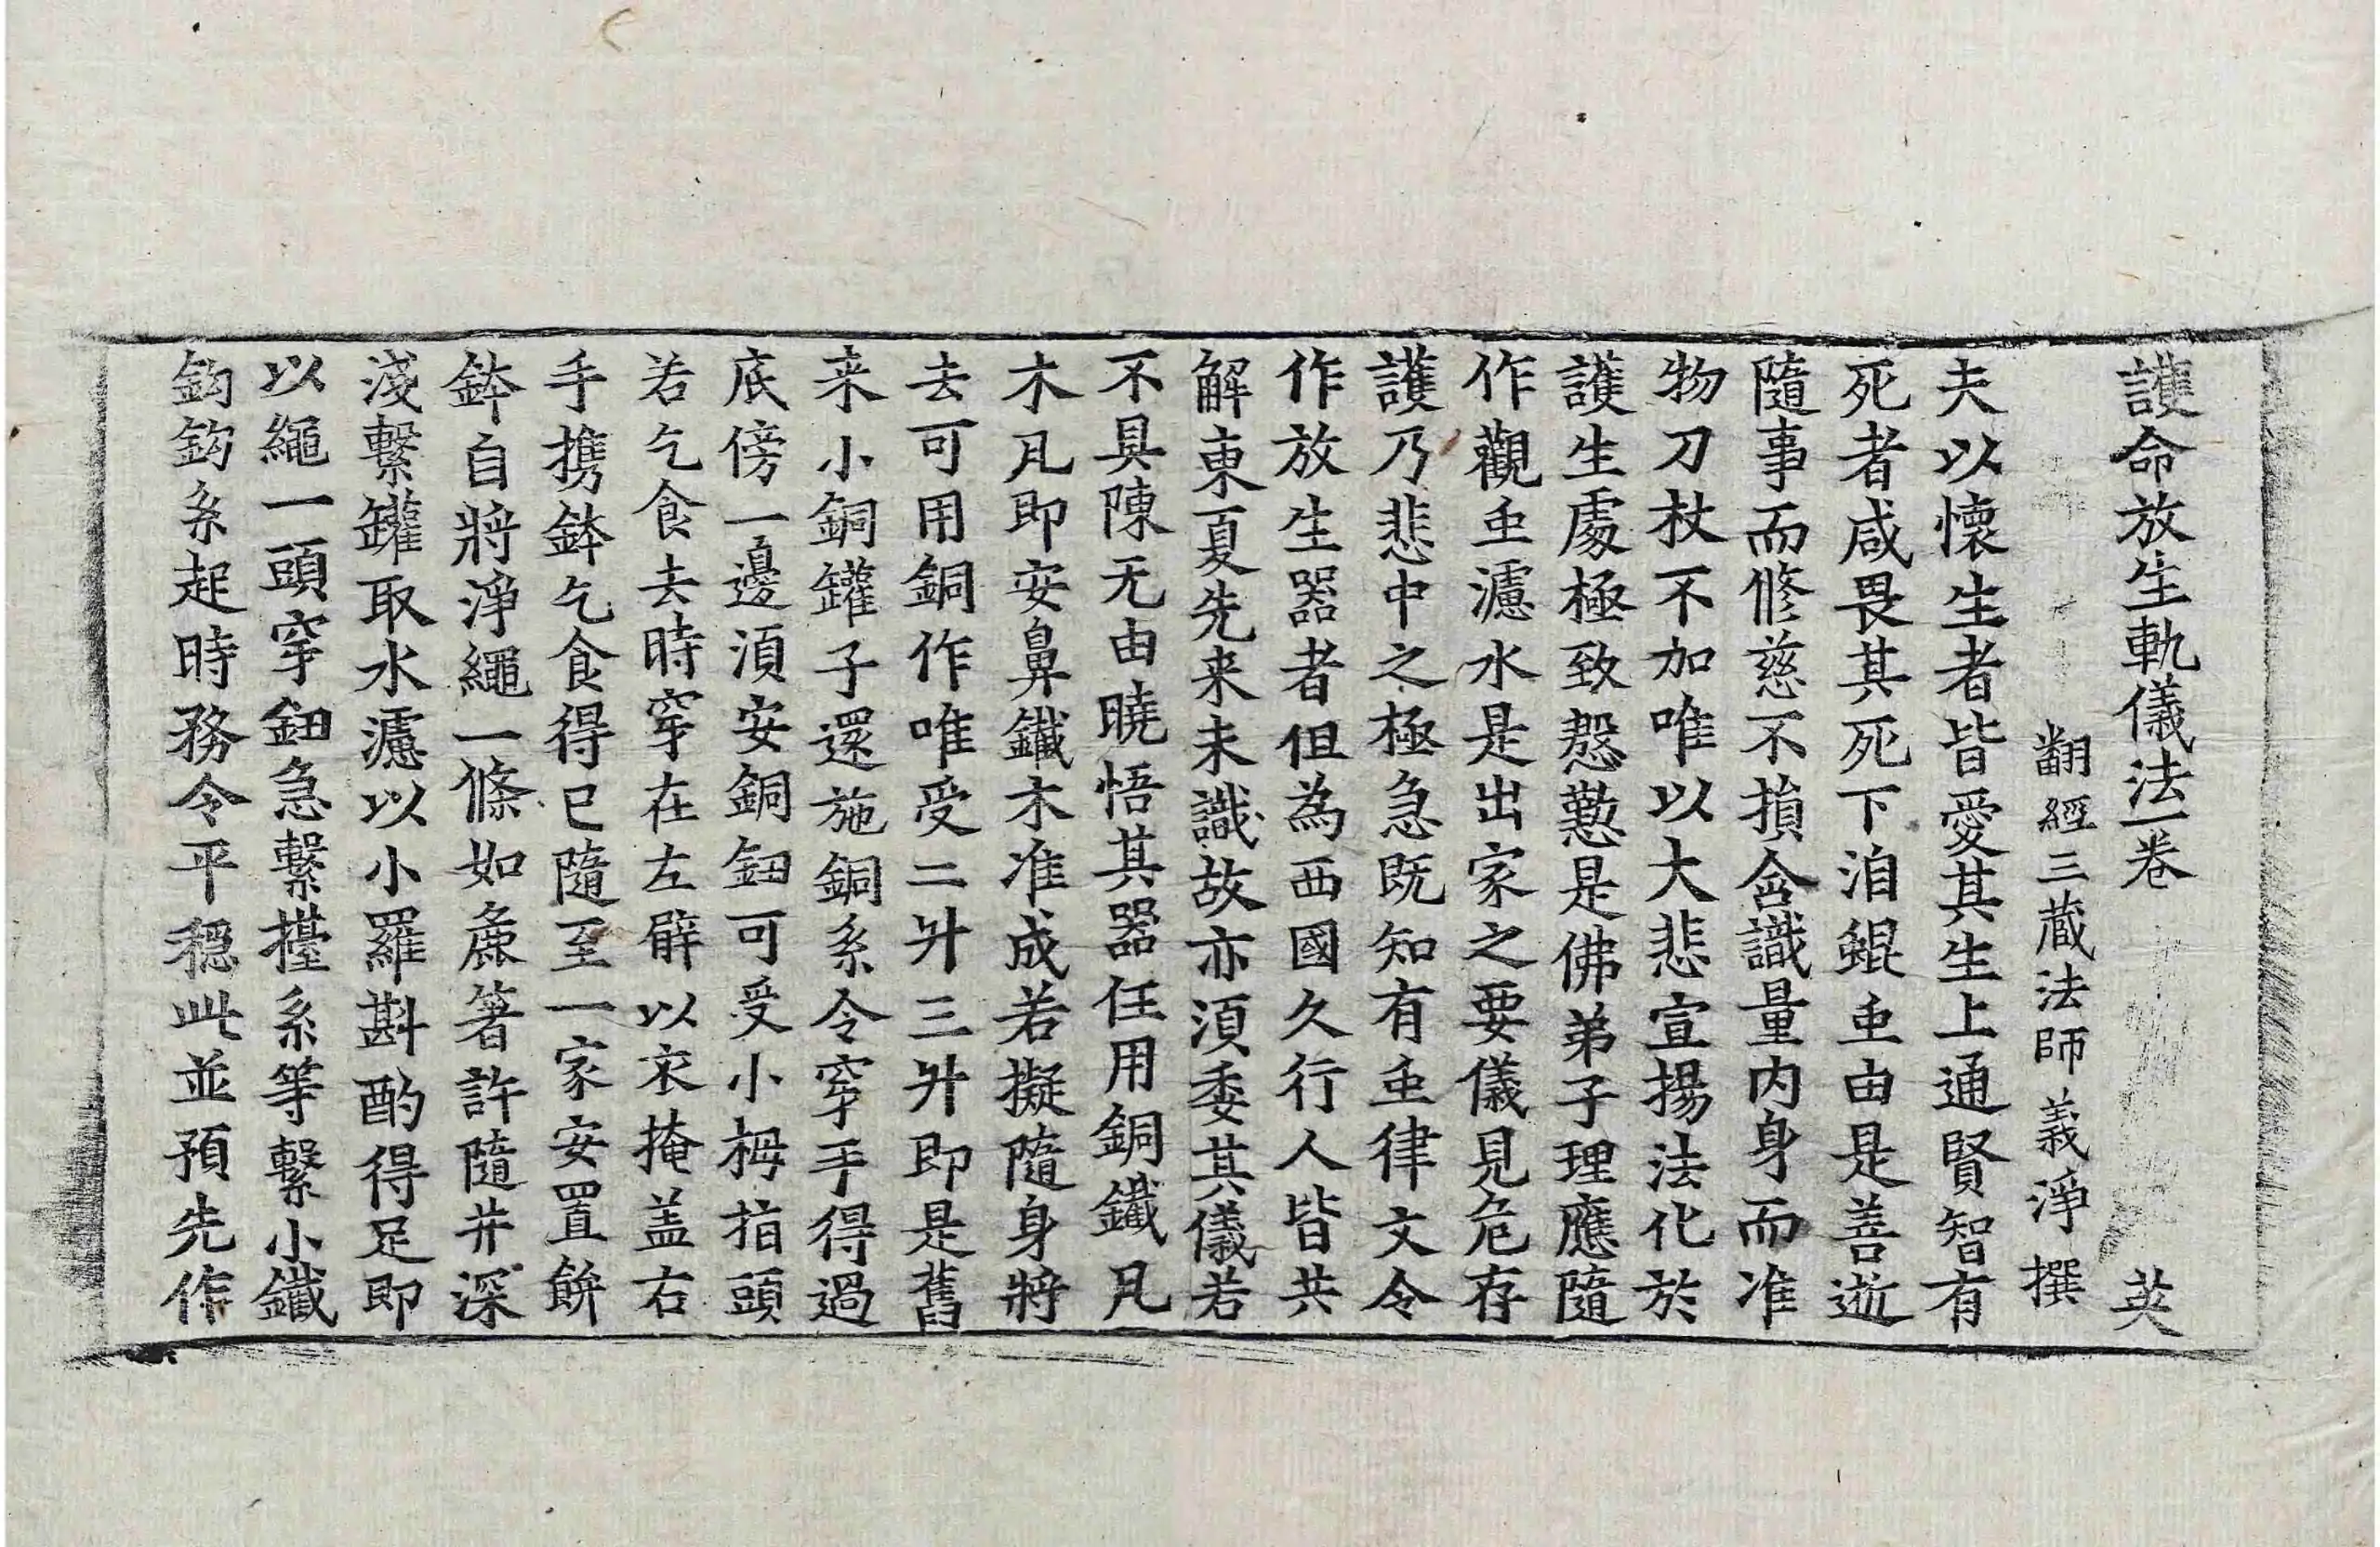 護命放生軌儀法一卷 英
翻經三藏法師義淨撰
夫以懷生者皆愛其生上通賢智有
死者咸畏其死下洎鯤䖝由是善逝
隨事而修慈不損含識量內身而准
物刀杖不加唯以大悲宣揚法化於
護生處極致慇懃是佛弟子理應隨
作觀䖝濾水是出家之要儀見危存
護乃悲中之極急既知有䖝律文令
作放生器者但為西國久行人皆共
解東夏先来未識故亦湏委其儀若
不具陳无由曉悟其器任用銅鐵凡
木凡即安鼻鐵木准成若擬隨身將
去可用銅作唯受二升三升即是舊
来小銅罐子還施銅系令穿手得過
底傍一邊湏安銅鈕可受小拇指頭
若乞食去時穿在左臂以衣掩盖右
手携鉢乞食得已隨至一家安置餅
鉢自將淨繩一條如麁箸許隨井深
淺繫罐取水濾以小羅斟酌得足即
以繩一頭穿鈕急繫擡系等繫小鐵
鈎鈎系起時務令平穏此並預先作